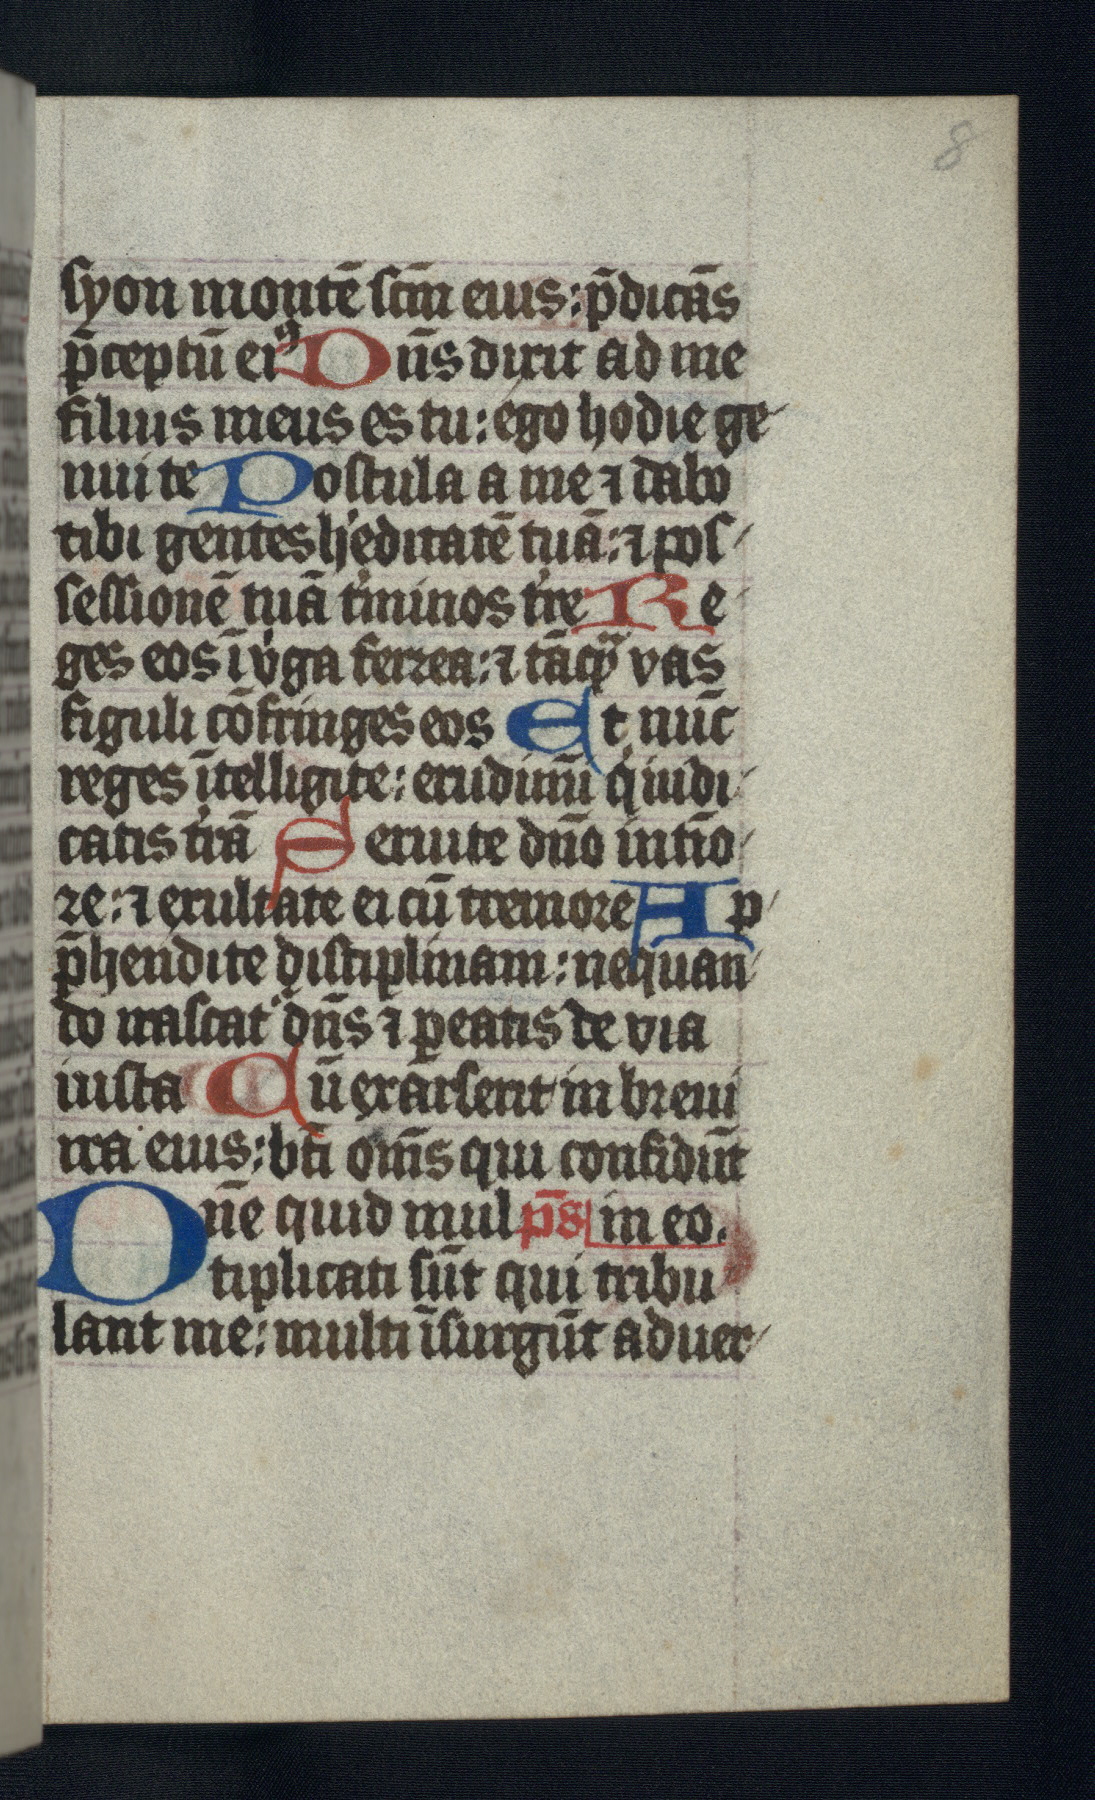 8
syon montē sc̄m eius: p̄dicās
p̄ceptū ei⁹ Dn̄s dixit ad me
filius meus es tu: ego hodie ge-
nui te Postula a me ⁊ dabo
tibi gentes h'editatē tuā: ⁊ pos-
sessionē tuā t'minos t're Re-
ges eos ī v'ga ferrea: ⁊ tāqᷓ vas
figuli cōfringes eos Et nūc
reges ītelligite: erudimī q' iudi-
catis t'rā Seruite dn̄o in tīo-
re: ⁊ exultate ei cū tremore Ap-
p̄hendite disciplinam: nequan-
do irascat᷑ dn̄s ⁊ ꝑeatis de via
iusta Cū exarserit in breui
ira eius: bt̄i om̄s qui confidūt
Dn̄e quid mul p̄s in eo.
tiplicati sūt qui tribu
lant me: multi īsurgūt aduer-